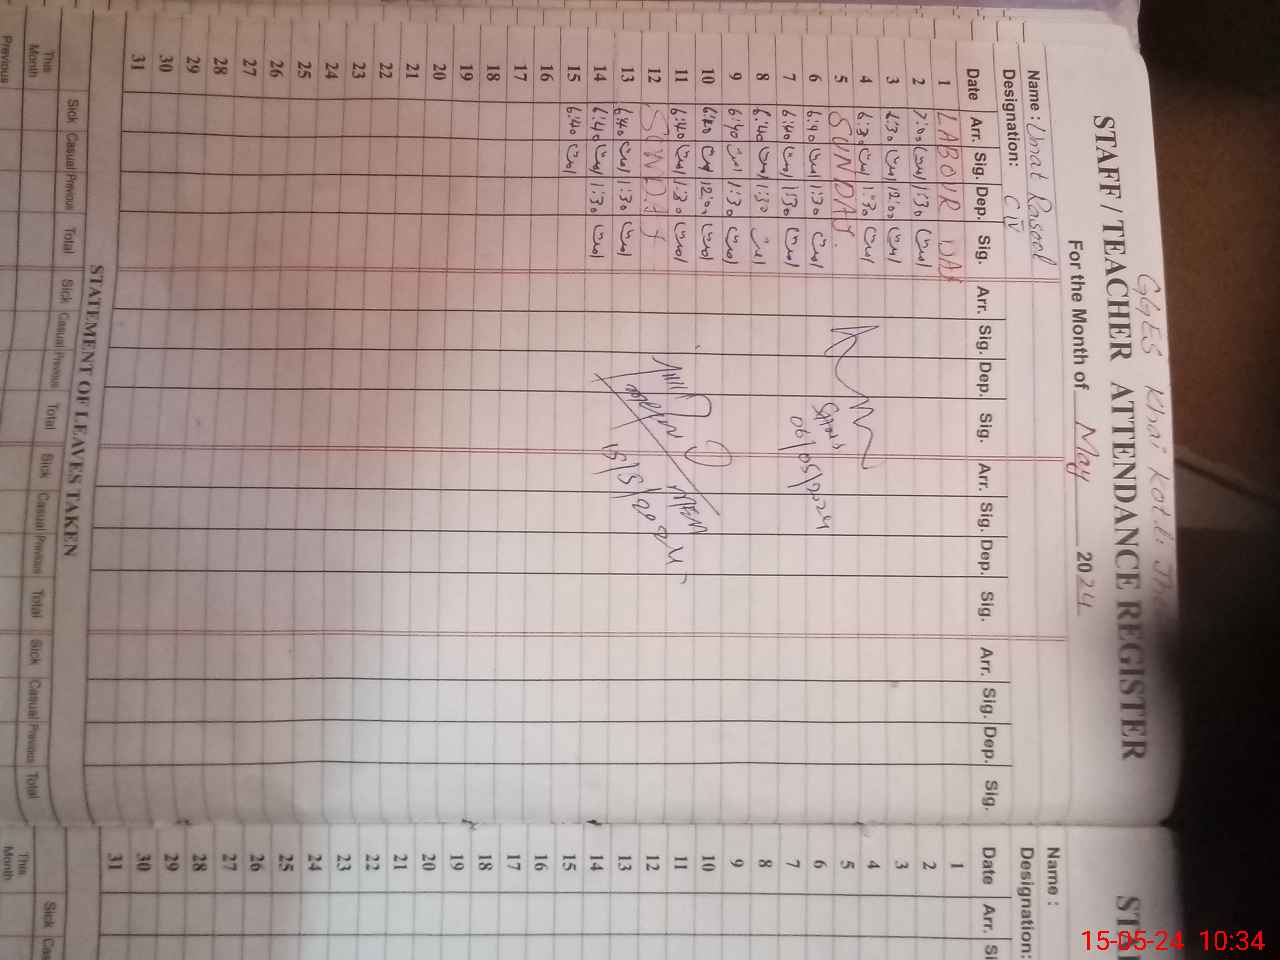 GGES Khai Kotli
STAFF / TEACHER ATTENDANCE REGISTER
For the Month of May 2024
Name : Umat Rasool
Designation: C IV
Date Arr. Sig. Dep. Sig. Arr. Sig. Dep. Sig. Arr. Sig. Dep. Sig. Arr. Sig. Dep. Sig.
1 LABOUR DAY
2 7:00 1:30
3 6:30 12:00
4 6:30 1:30
5 SUNDAY
6 6:40 1:30
7 6:40 1:30
8 6:40 1:30
9 6:40 1:30
10 6:40 12:00
11 6:40 1:30
12 SUNDAY
13 6:40 1:30
14 6:40 1:30
15 6:40
16
17
18
19
20
21
22
23
24
25
26
27
28
29
30
31
06/05/2024
MEM
15/5/2024
STATEMENT OF LEAVES TAKEN
Sick Casual Previous Total Sick Casual Previous Total Sick Casual Previous Total Sick Casual Previous Total
This Month
Previous
Name :
Designation:
Date Arr.
1
2
3
4
5
6
7
8
9
10
11
12
13
14
15
16
17
18
19
20
21
22
23
24
25
26
27
28
29
30
31
Sick
This Month
15-05-24 10:34